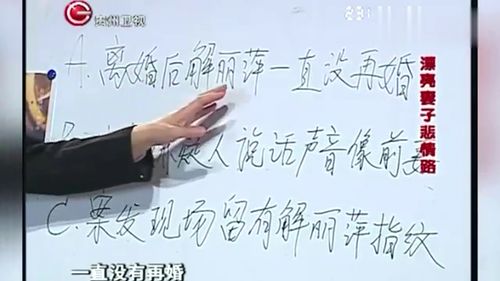 贵州卫视
A.离婚后解丽萍一直没再婚
疑人说话声音像前妻
C.案发现场留有解丽萍指纹
漂亮妻子悲情路
一直没有再婚